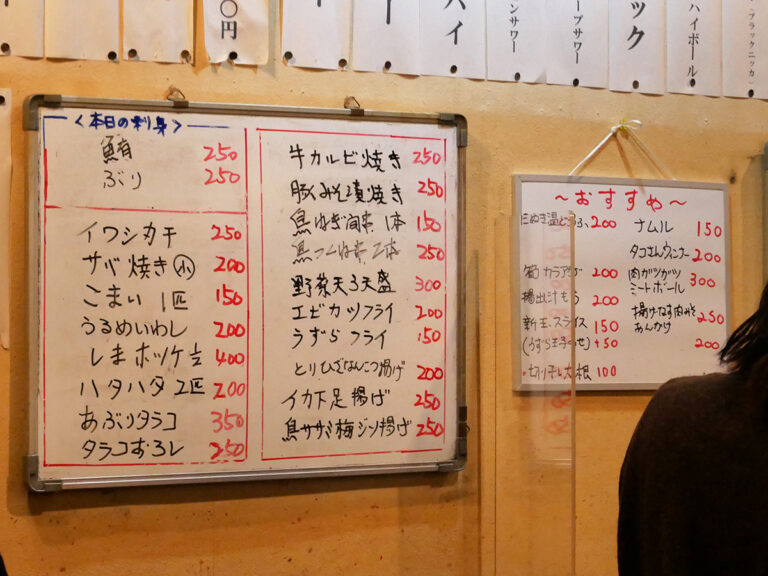 〇円
ハイ
ンサワー
ープサワー
ック
ハイボール
(ブラックニッカ)
<本日の刺身>
鮪 250
ぶり 250
イワシカキ 250
サバ焼き小 200
こまい 1匹 150
うるめいわし 200
しまホッケ 400
ハタハタ 2匹 200
あぶりタラコ 350
タラコおろし 250
牛カルビ焼き 250
豚みそ漬焼き 250
鳥ねぎ間串 1本 150
鳥つくね串 2本 250
野菜天3天盛 300
エビカツフライ 200
うずらフライ 150
とりひざなんこつ揚げ 200
イカ下足揚げ 250
鳥ササミ梅ジソ揚げ 250
~おすすめ~
200
カラアゲ 200
揚出汁もち 200
新玉スライス 150
+50
切り干し大根 100
ナムル 150
タコさんウィンナー 200
肉ガッツガツ
ミートボール 300
揚げなす肉みそ
あんかけ 250
200